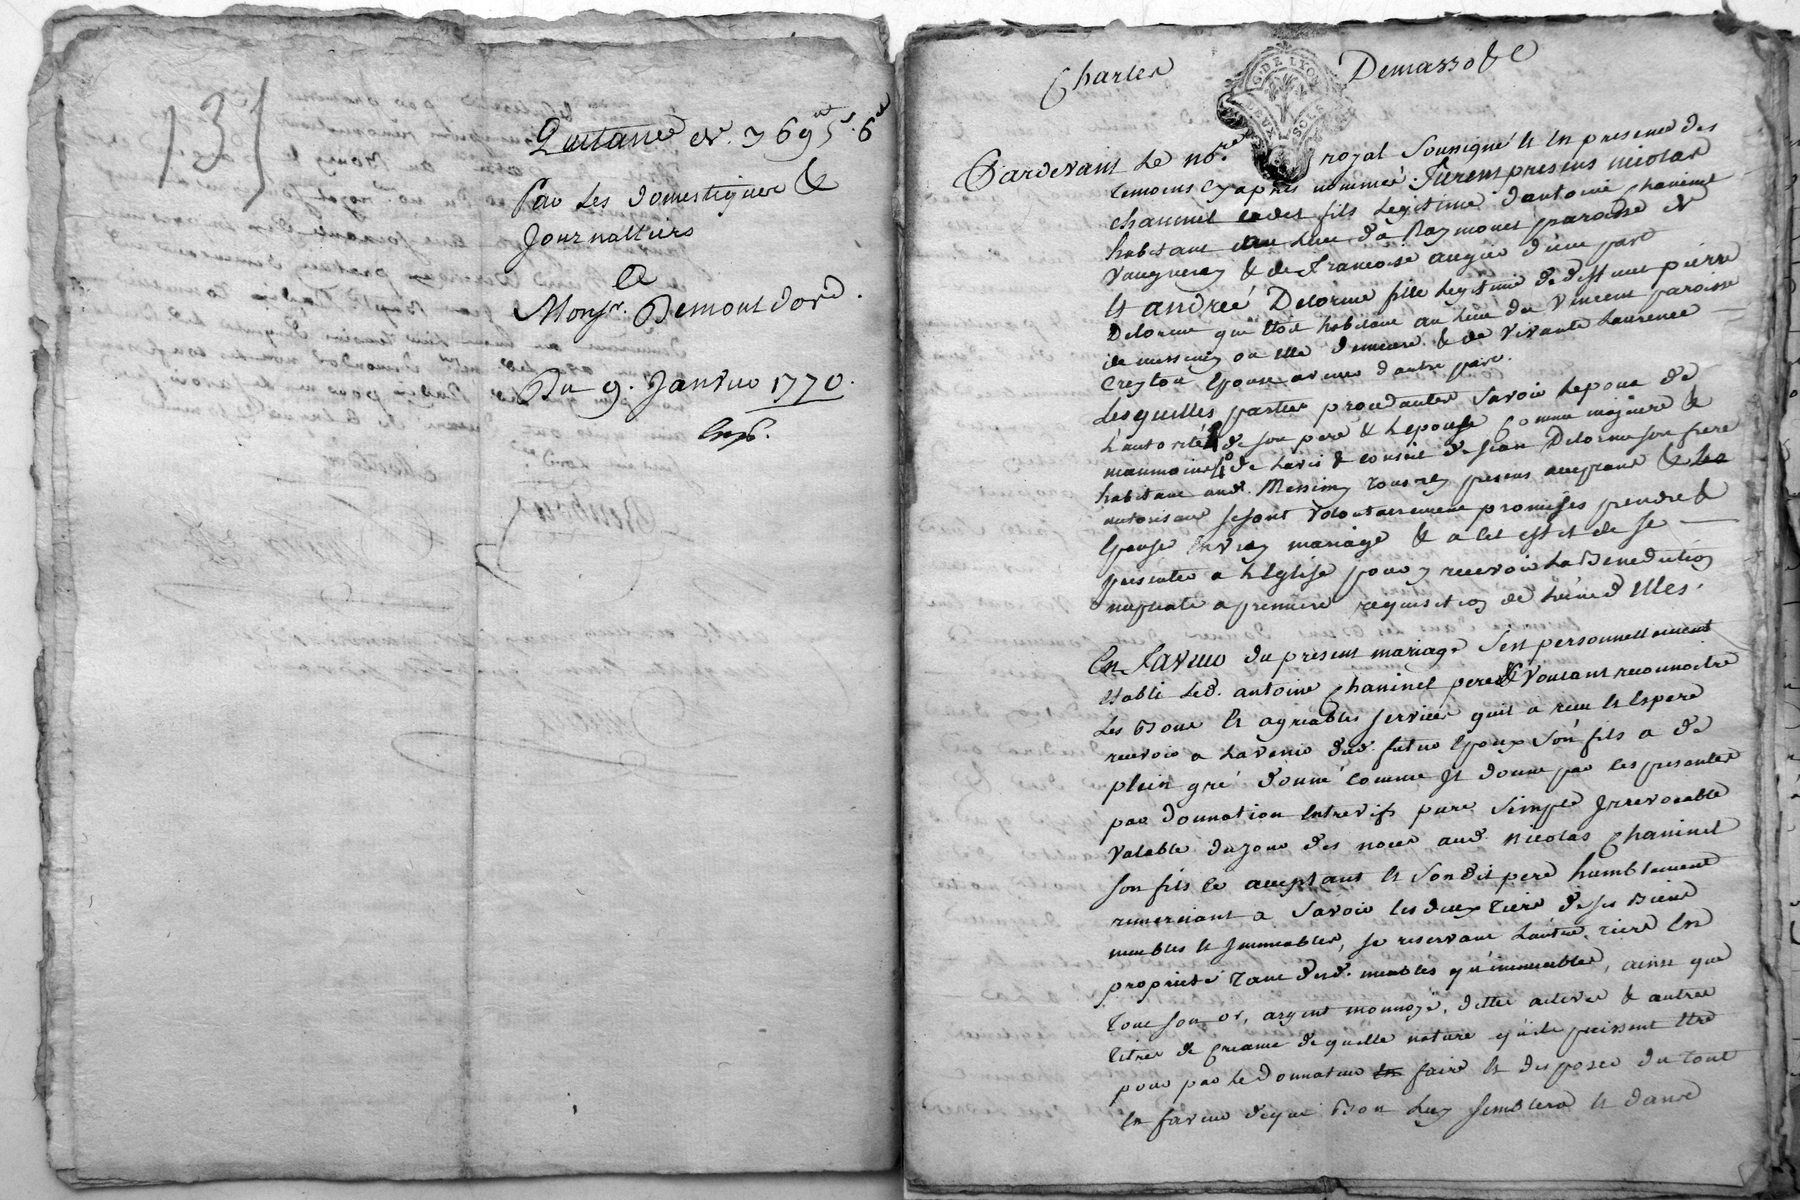 131
Quittance de 369lt 5s. 6d
Par Les Domestiques &
Journalliers
A
Monsr. Demontdord.
Du 9. Janvier 1770.
Exp.
Charles Demassobe
G. DE LYON
DEUX SOLS
Pardevant Le nore royal soussigné & en presence des
temoins cy apres nommés furent presens nicolas
chaninel cadet fils legitime d'antoine chaninel
habitant au lieu de Raymonet paroisse de
Vaugneray & de francoise augier d'une part
Et andreé Delorme fille legitime de deffunt pierre
Delorme quil etoit habitant au lieu du Vincent paroisse
de messimy ou elle demeure & de vivante Laurence
Creyton Epouse avenir d'autre part.
Lesquelles parties procedantes savoir Lepoux de
L'autorité de son pere & Lepouse comme majeure &
neanmoins de Lavis & conseil de Jean Delorme son frere
habitant aud. Messimy tous icy presens acceptant &
autorisant se sont volontairement promises prendre &
Epouser en vray mariage & a cet effet de se
presenter a L'Eglise pour y recevoir La Benediction
nuptiale a premiere requisition de L'une d'Elles.
En faveur du present mariage s'est personnellement
etabli led. antoine Chaninel pere & voulant reconnoitre
Les Bons & agreables services quil a recu & Espere
recevoir a Lavenir dud. futur Epoux son fils a de
plein gré donné comme Il donne par ces presentes
par donnation Entrevifs pure simple Irrevocable
Valable du jour des noces aud. Nicolas Chaninel
son fils ce acceptant & son dit pere humblement
remerciant a savoir les deux tiers de ses Biens
meubles & Immeubles, se reservant L'autre tiers En
proprieté tant desd. meubles qu'immeubles, ainsi que
tout son or, argent monnoyé, dettes actives & autres
titres de creance de quelle nature quils puissent Etre
pour par le donnateur faire & disposer du tout
En faveur de qui Bon Luy semblera & dans